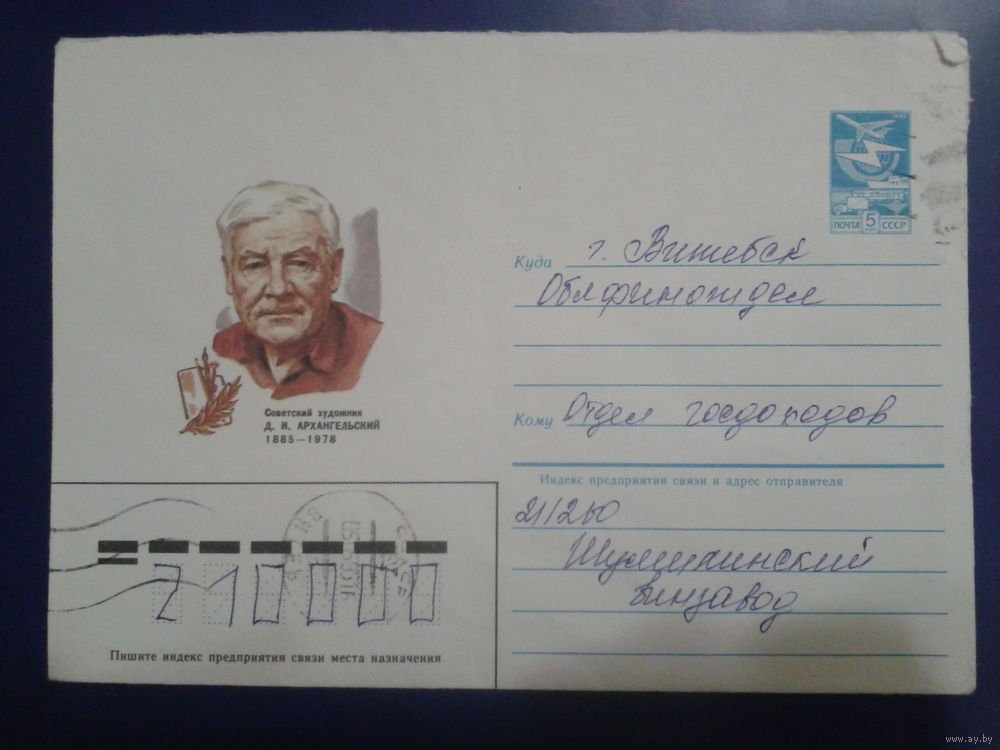 ПОЧТА 5 СССР
Куда г. Витебск
Облфинотдел
Советский художник
Д. И. АРХАНГЕЛЬСКИЙ
1885—1978
Кому Отдел госдоходов
Индекс предприятия связи и адрес отправителя
211260
Шумилинский
винзавод
210000
Пишите индекс предприятия связи места назначения
www.ay.by